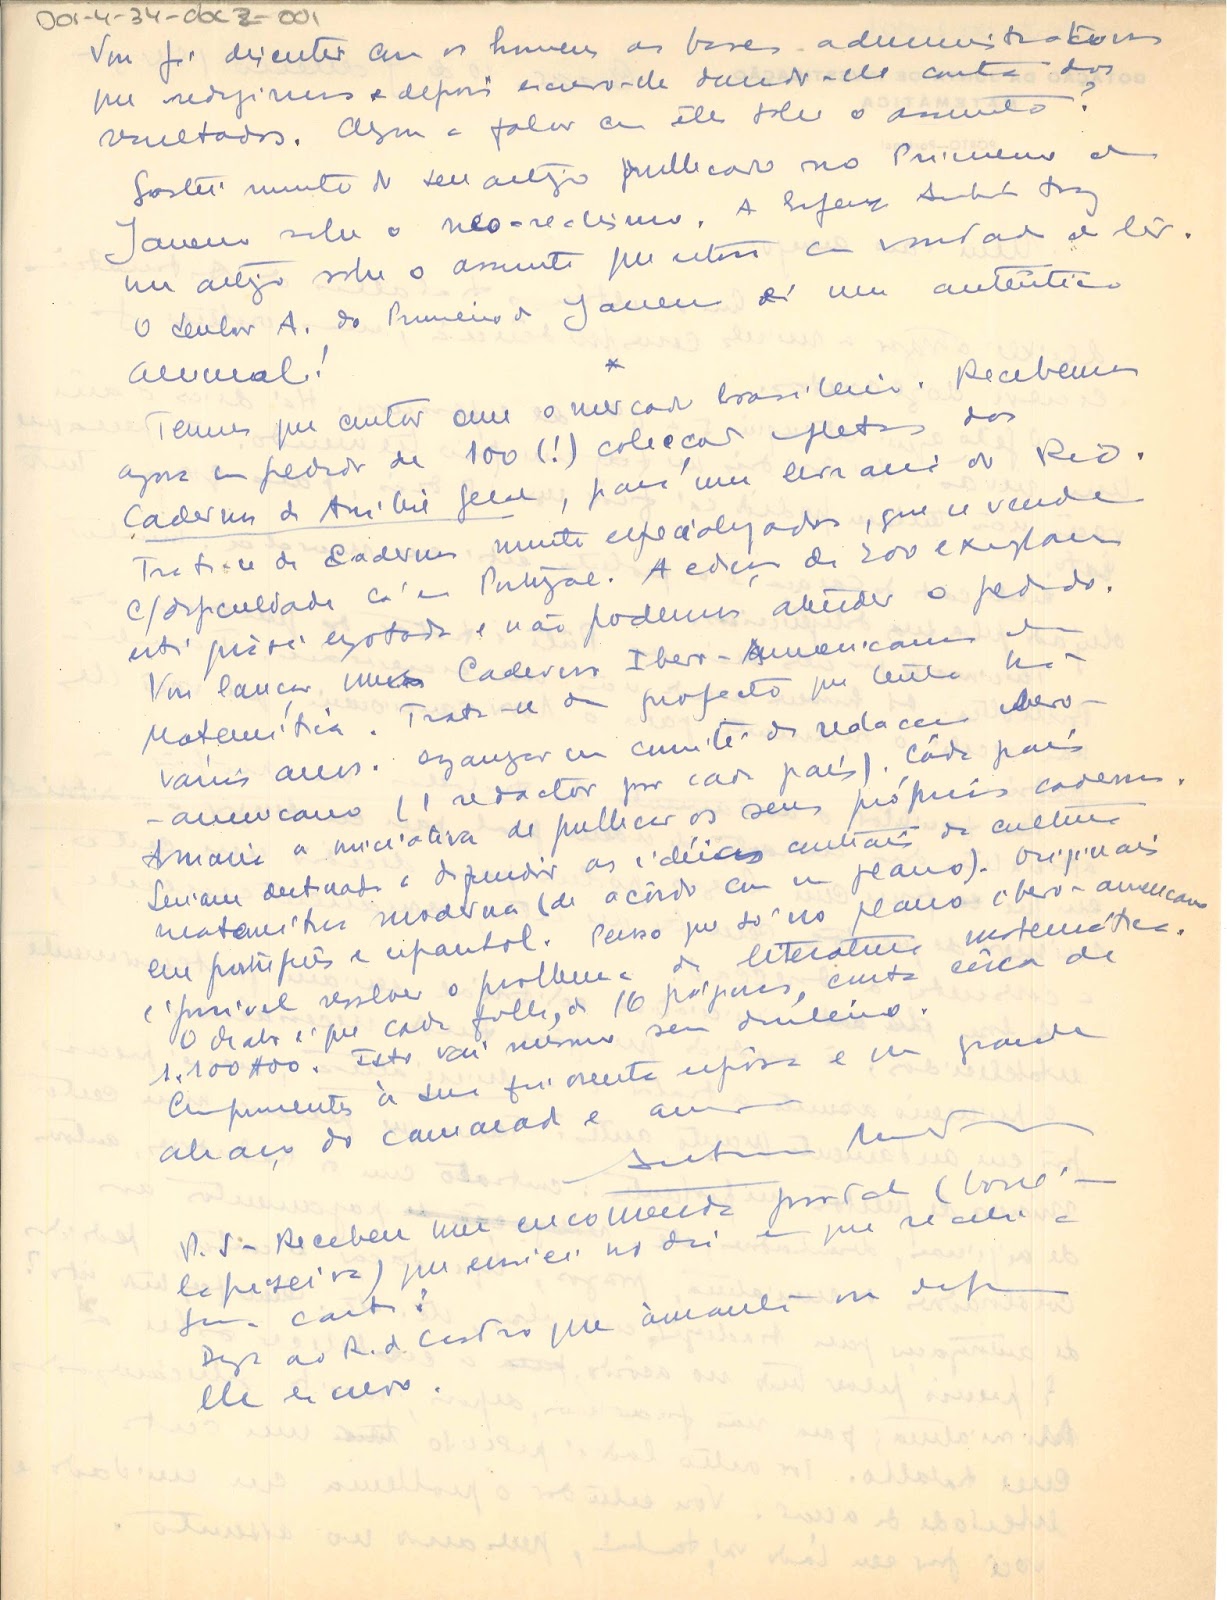 001-4-34-doc 2-001
Vou discutir com os homens as bases administrativas
que redigimos e depois escrevo-lhe dando-lhe conta dos
resultados. a falar com êles sôbre o assunto?
Gostei muito do seu artigo publicado no Primeiro de
Janeiro sôbre o neo-realismo. A traz
um artigo sôbre o assunto que estou com vontade de lêr.
O senhor A. do Primeiro de Janeiro é um autêntico
animal!
*
Temos que contar com o mercado brasileiro. Recebemos
agora um pedido de 100 (!) colecções completas dos
Cadernos de Análise Geral, para uma livraria do Rio.
Trata-se de Cadernos muito especializados, que se vendem
c/dificuldade cá em Portugal. A edição de 200 exemplares
está quási esgotada e não podemos atender o pedido.
Vou lançar uns Cadernos Ibero-Americanos de
Matemática. Trata-se de um projecto que tenho há
vários anos. Organizar um comité de redacção ibero-
-americano (1 redactor por cada país). Cada país
tomaria a iniciativa de publicar os seus próprios cadernos.
Seriam destinados a difundir as idéias centrais da cultura
matemática moderna (de acôrdo com um plano). Originais
em português e espanhol. Penso que só no plano ibero-americano
é possível resolver o problema da literatura matemática.
O diabo é que cada folha, de 16 páginas, custa cêrca de
1.100$00. Isto vai mesmo sem dinheiro.
Cumprimentos à sua esposa e um grande
abraço do camarada e amigo
P.S - Recebeu uma encomenda postal
que enviei no dia em que recebi a
sua carta?
Diga ao R. de Castro que àmanhã ou depois
lhe escrevo.